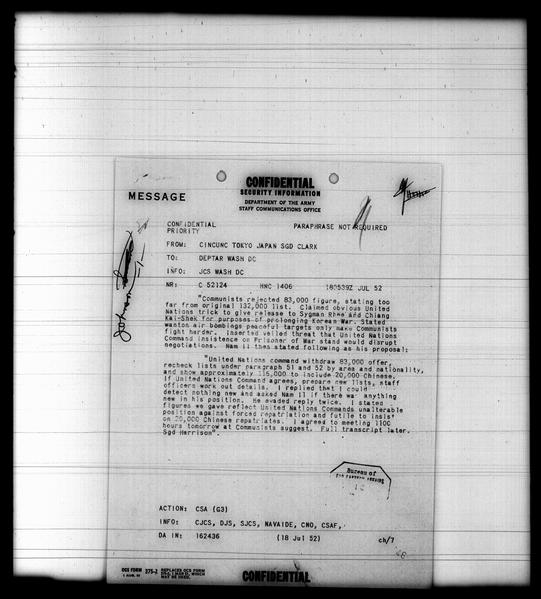 CONFIDENTIAL
SECURITY INFORMATION
DEPARTMENT OF THE ARMY
STAFF COMMUNICATIONS OFFICE
MESSAGE
CONFIDENTIAL
PRIORITY
PARAPHRASE NOT REQUIRED
FROM: CINCUNC TOKYO JAPAN SGD CLARK
TO: DEPTAR WASH DC
INFO: JCS WASH DC
NR: C 52124 HNC 1406 180539Z JUL 52
"Communists rejected 83,000 figure, stating too
far from original 132,000 list. Claimed obvious United
Nations trick to give release to Sygman Rhee and Chiang
Kai-Shek for purposes of prolonging Korean War. Stated
wanton air bombings peaceful targets only make Communists
fight harder. Inserted veiled threat that United Nations
Command insistence on Prisoner of War stand would disrupt
negotiations. Nam Il then stated following as his proposal:
"United Nations command withdraw 83,000 offer,
recheck lists under paragraph 51 and 52 by area and nationality,
and show approximately 115,000 to include 20,000 Chinese.
If United Nations Command agrees, prepare new lists, staff
officers work out details. I replied that I could
detect nothing new and asked Nam Il if there was anything
new in his position. He evaded reply twice. I stated
figures we gave reflect United Nations Commands unalterable
position against forced repatriation and futile to insist
on 20,000 Chinese repatriates. I agreed to meeting 1100
hours tomorrow at Communists suggest. Full transcript later.
Sgd Harrison".
Bureau of
ACTION: CSA (G3)
INFO: CJCS, DJS, SJCS, NAVAIDE, CNO, CSAF,
DA IN: 162436 (18 Jul 52) ch/7
OCS FORM 375-2 REPLACES OCS FORM
WHICH
MAY BE USED.
CONFIDENTIAL